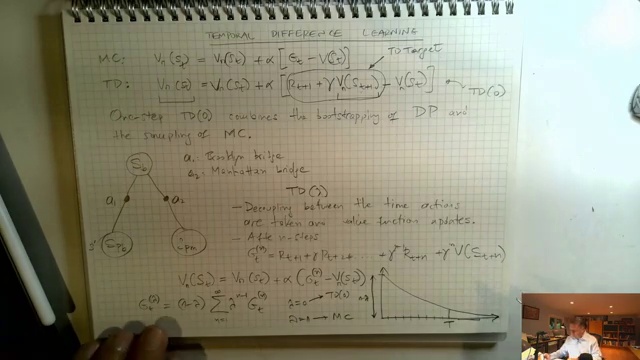 TEMPORAL DIFFERENCE LEARNING
MC: Vπ(St) = Vπ(St) + α [Gt − V(St)]
TD Target
TD: Vπ(St) = Vπ(St) + α [Rt+1 + γ Vπ(St+1) − Vπ(St)]
TD(0)
One-step TD(0) combines the bootstrapping of DP and
the sampling of MC.
a1: Brooklyn bridge
a2: Manhattan bridge
a1
a2
TD(λ)
– Decoupling between the time actions
are taken and value function updates.
– After n-steps
Gt(n) = Rt+1 + γ Rt+2 + ... + γ^n-1 Rt+n + γ^n V(St+n)
Vπ(St) = Vπ(St) + α (Gt(n) − Vπ(St))
Gt(λ) = (1−λ) Σ λ^n-1 Gt(n)
λ=0 → TD(0)
→ MC
1-λ
T